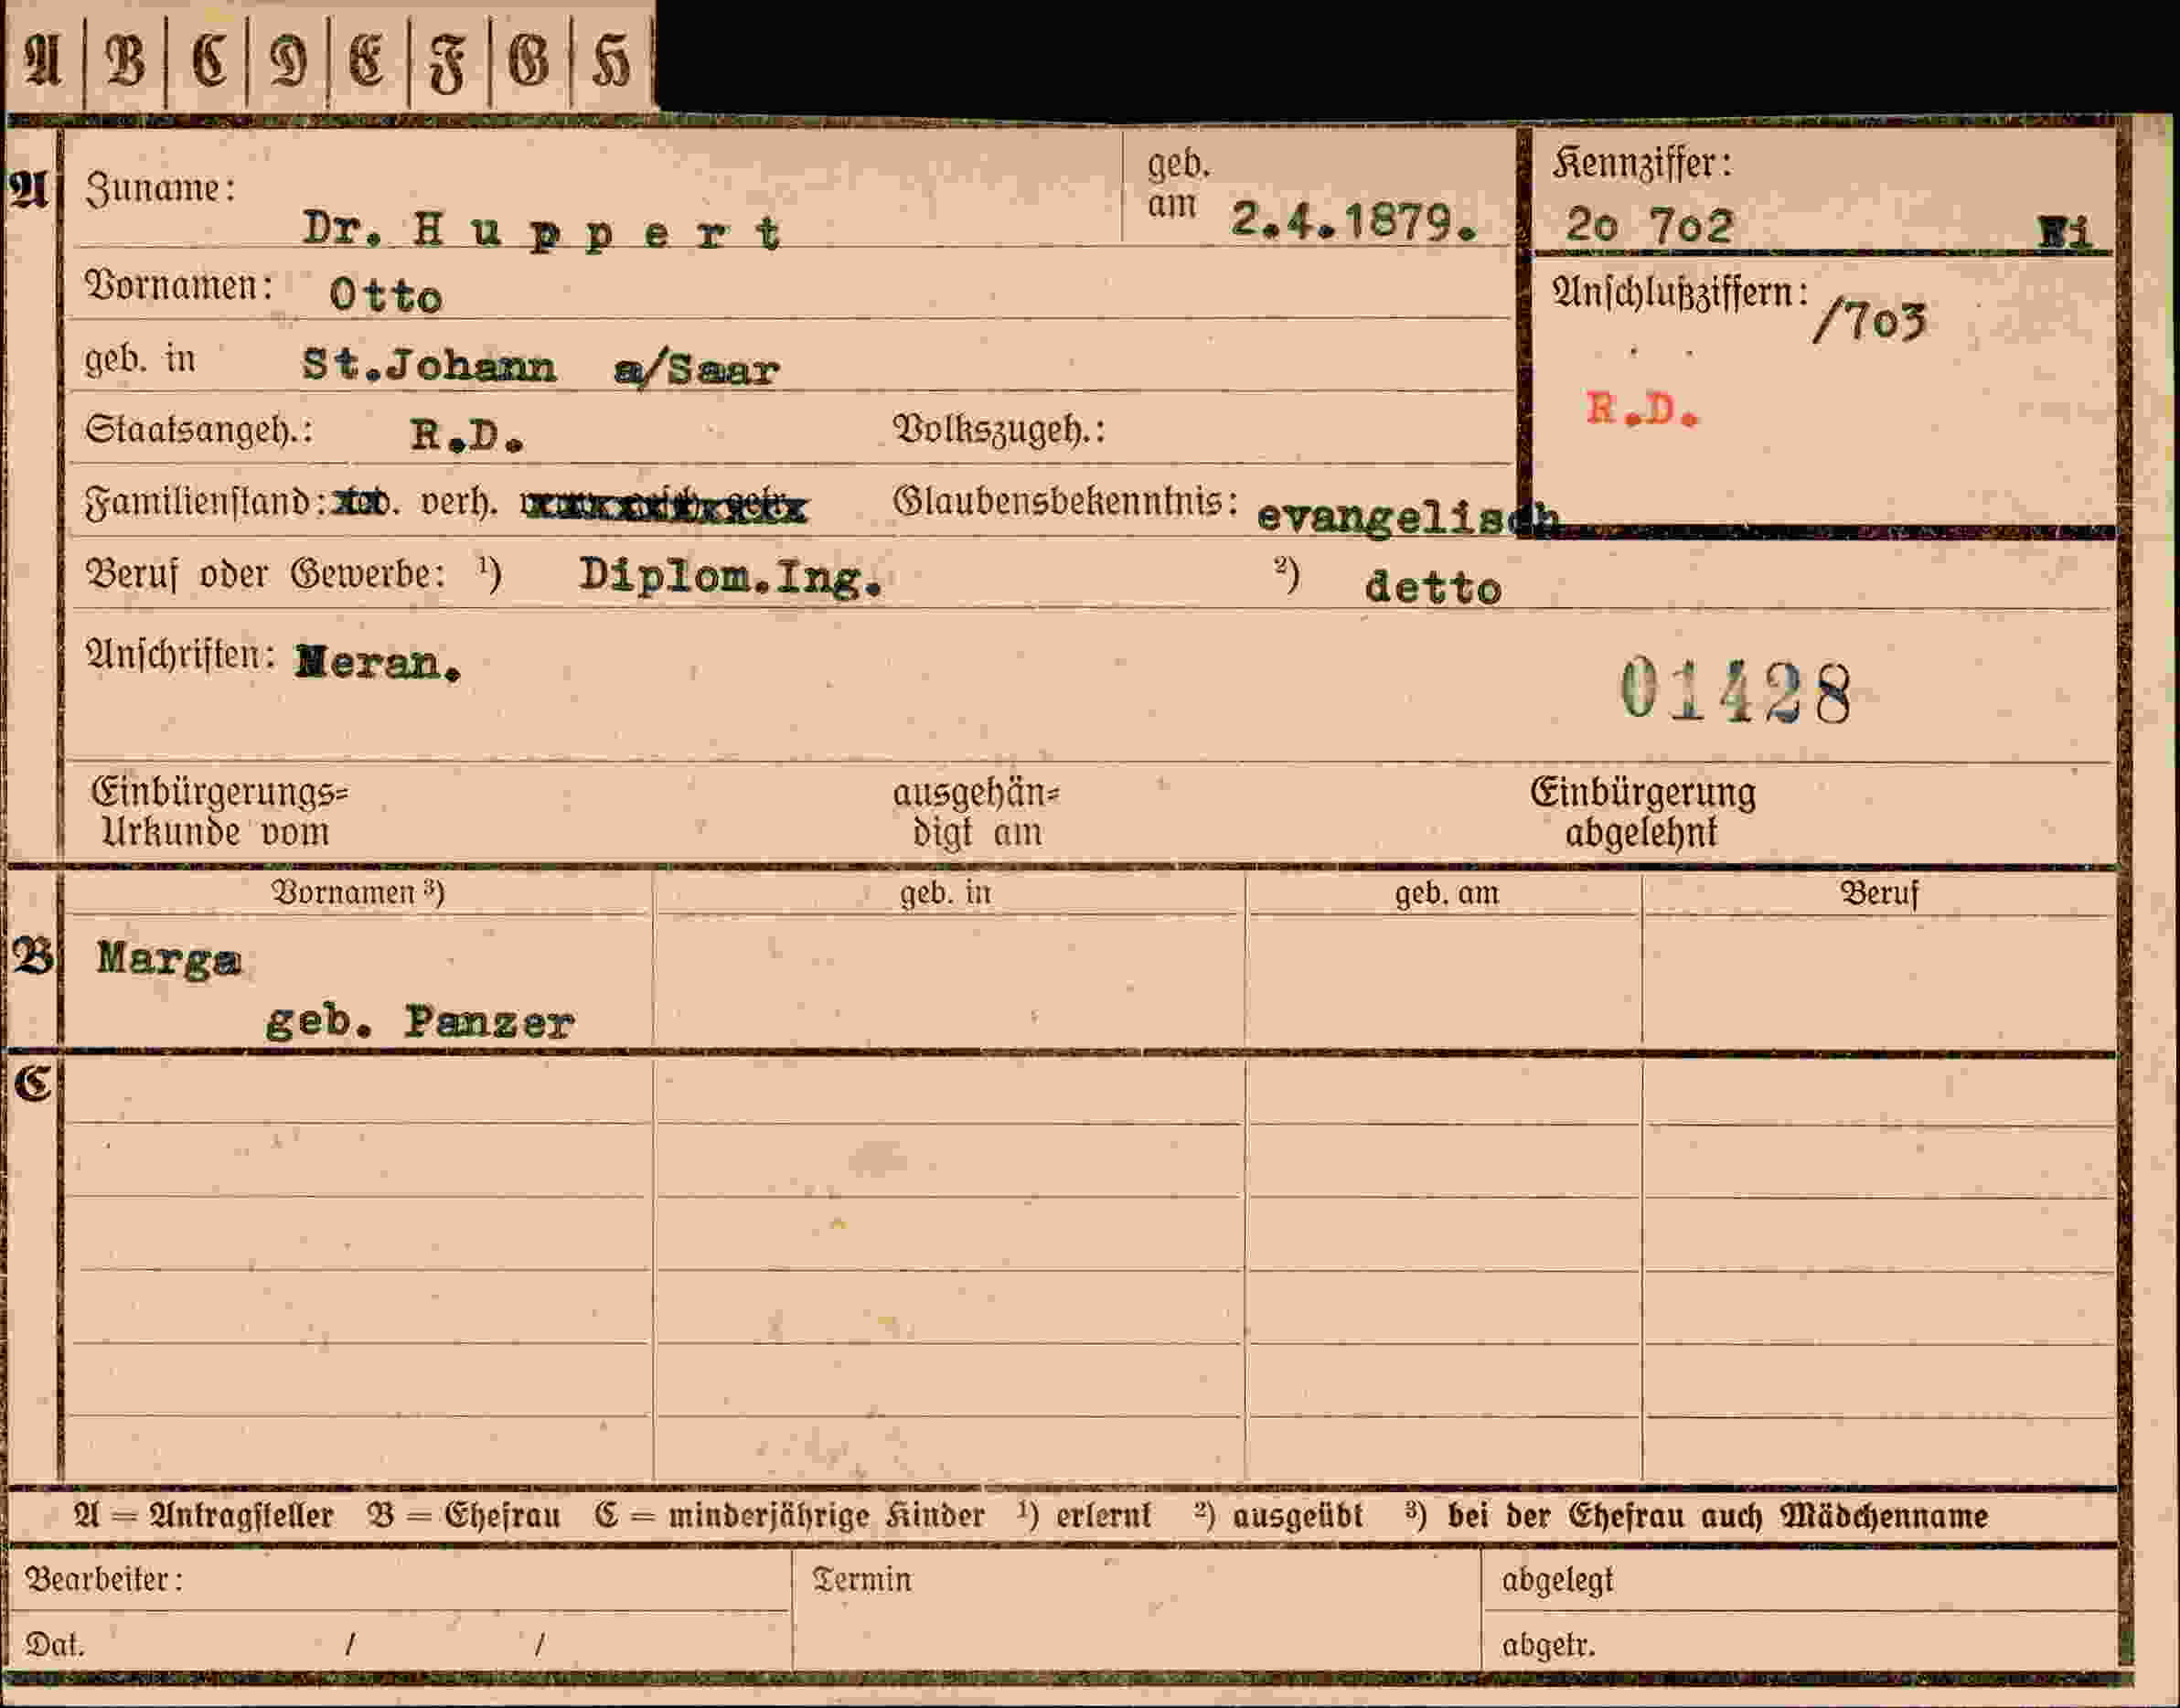 A | B | C | D | E | F | G | H
A
Zuname: Dr. H u p p e r t
geb. am 2.4.1879.
Kennziffer:
20 702 Fi
Vornamen: Otto
Anschlußziffern: /703
geb. in St.Johann a/Saar
R.D.
Staatsangeh.: R.D. Volkszugeh.:
Familienstand: verh. Glaubensbekenntnis: evangelisch
Beruf oder Gewerbe: ¹) Diplom.Ing. ²) detto
Anschriften: Meran.
01428
Einbürgerungs=
Urkunde vom
ausgehän=
digt am
Einbürgerung
abgelehnt
Vornamen ³) geb. in geb. am Beruf
B Marga
geb. Panzer
C
A = Antragsteller B = Ehefrau C = minderjährige Kinder ¹) erlernt ²) ausgeübt ³) bei der Ehefrau auch Mädchenname
Bearbeiter: Termin abgelegt
Dat. / / abgetr.